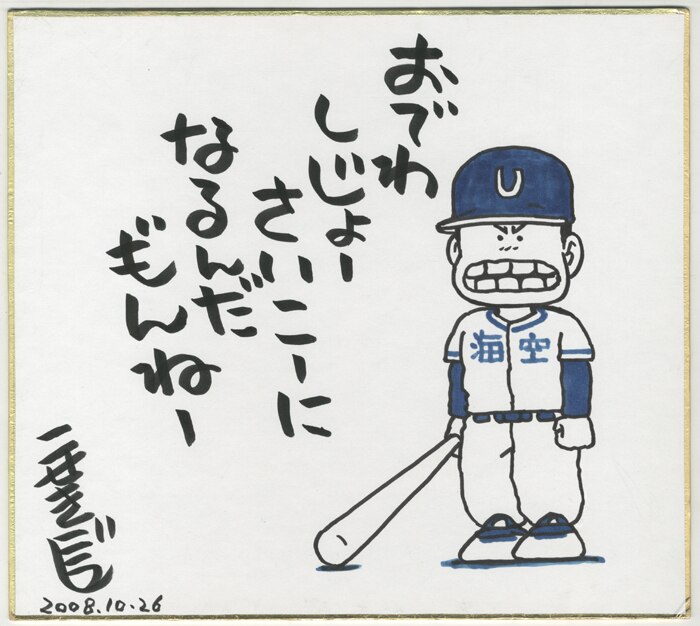 おでわ
しじょー
さいこーに
なるんだ
も゛んねー
U
海空
こせきこうじ
2008.10.26